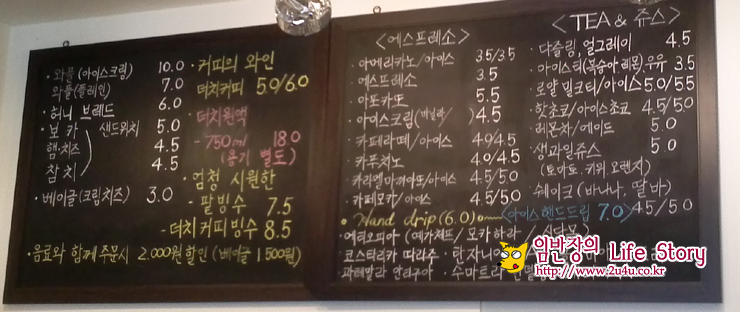 · 와플 (아이스크림) 10.0
와플 (플레인) 7.0
· 허니 브레드 6.0
· 보 카 샌드위치 5.0
햄·치즈 4.5
참 치 4.5
· 베이글(크림치즈) 3.0
· 커피의 와인
더치커피 5.0/6.0
· 더치원액
- 750ml 18.0
(용기 별도)
· 엄청 시원한
- 팥빙수 7.5
- 더치커피빙수 8.5
· 음료와 함께 주문시 2,000원 할인 (베이글 1,500원)
<에스프레소>
· 아메리카노/아이스 3.5/3.5
· 에스프레소 3.5
· 아포카토 5.5
· 아이스크림(바닐라/ ) 4.5
· 카페라떼/아이스 4.0/4.5
· 카푸치노 4.0/4.5
· 카라멜마끼아또/아이스 4.5/5.0
· 카페모카/아이스 4.5/5.0
<TEA & 쥬스>
· 다즐링, 얼그레이 4.5
· 아이스티(복숭아, 레몬), 우유 3.5
· 로얄 밀크티/아이스 5.0/5.5
· 핫초코/아이스초코 4.5/5.0
· 레몬차/에이드 5.0
· 생과일쥬스 5.0
(토마토. 키위. 오렌지)
· 쉐이크 (바나나, 딸바) 4.5/5.0
• Hand drip (6.0) (아이스핸드드립 7.0)
· 에티오피아 (예가체프/ 모카하라 / 시다모)
· 코스타리카 따라주 · 탄자니아
· 과테말라 안티구아 · 수마트라 만델링
임반장의 Life Story
http://www.2u4u.co.kr